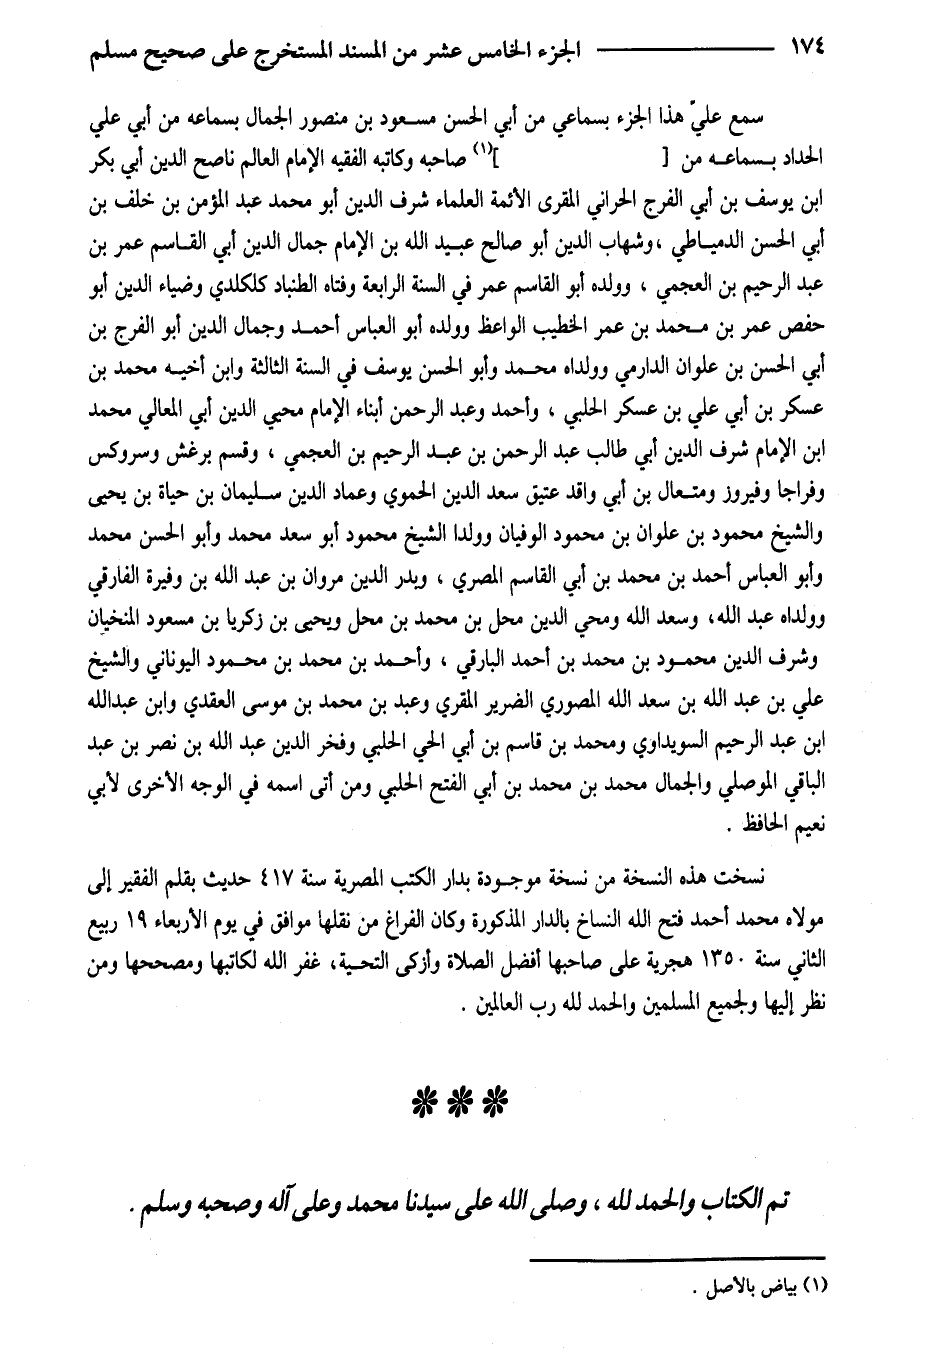 ١٧٤ الجزء الخامس عشر من المسند المستخرج على صحيح مسلم
سمع عليّ هذا الجزء بسماعي من أبي الحسن مسعود بن منصور الجمال بسماعه من أبي علي
الحداد بسماعه من [ ](١) صاحبه وكاتبه الفقيه الإمام العالم ناصح الدين أبي بكر
ابن يوسف بن أبي الفرج الحراني المقرى الأئمة العلماء شرف الدين أبو محمد عبد المؤمن بن خلف بن
أبي الحسن الدمياطي ، وشهاب الدين أبو صالح عبيد الله بن الإمام جمال الدين أبي القاسم عمر بن
عبد الرحيم بن العجمي ، وولده أبو القاسم عمر في السنة الرابعة وفتاه الطنباد كلكلدي وضياء الدين أبو
حفص عمر بن محمد بن عمر الخطيب الواعظ وولده أبو العباس أحمد وجمال الدين أبو الفرج بن
أبي الحسن بن علوان الدارمي وولداه محمد وأبو الحسن يوسف في السنة الثالثة وابن أخيه محمد بن
عسكر بن أبي علي بن عسكر الحلبي ، وأحمد وعبد الرحمن أبناء الإمام محيي الدين أبي المعالي محمد
ابن الإمام شرف الدين أبي طالب عبد الرحمن بن عبد الرحيم بن العجمي ، وقسم برغش وسروكس
وفراجا وفيروز ومتعال بن أبي واقد عتيق سعد الدين الحموي وعماد الدين سليمان بن حياة بن يحيى
والشيخ محمود بن علوان بن محمود الوفيان وولدا الشيخ محمود أبو سعد محمد وأبو الحسن محمد
وأبو العباس أحمد بن محمد بن أبي القاسم المصري ، وبدر الدين مروان بن عبد الله بن وفيرة الفارقي
وولداه عبد الله، وسعد الله ومحي الدين محل بن محمد بن محل ويحيى بن زكريا بن مسعود المنخيان
وشرف الدين محمود بن محمد بن أحمد البارقي ، وأحمد بن محمد بن محمود اليوناني والشيخ
علي بن عبد الله بن سعد الله المصوري الضرير المقري وعبد بن محمد بن موسى العقدي وابن عبدالله
ابن عبد الرحيم السويداوي ومحمد بن قاسم بن أبي الحي الحلبي وفخر الدين عبد الله بن نصر بن عبد
الباقي الموصلي والجمال محمد بن محمد بن أبي الفتح الحلبي ومن أتى اسمه في الوجه الأخرى لأبي
نعيم الحافظ .
نسخت هذه النسخة من نسخة موجودة بدار الكتب المصرية سنة ٤١٧ حديث بقلم الفقير إلى
مولاه محمد أحمد فتح الله النساخ بالدار المذكورة وكان الفراغ من نقلها موافق في يوم الأربعاء ١٩ ربيع
الثاني سنة ١٣٥٠ هجرية على صاحبها أفضل الصلاة وأزكى التحية، غفر الله لكاتبها ومصححها ومن
نظر إليها ولجميع المسلمين والحمد لله رب العالمين .
تم الكتاب والحمد لله ، وصلى الله على سيدنا محمد وعلى آله وصحبه وسلم .
(١) بياض بالأصل .